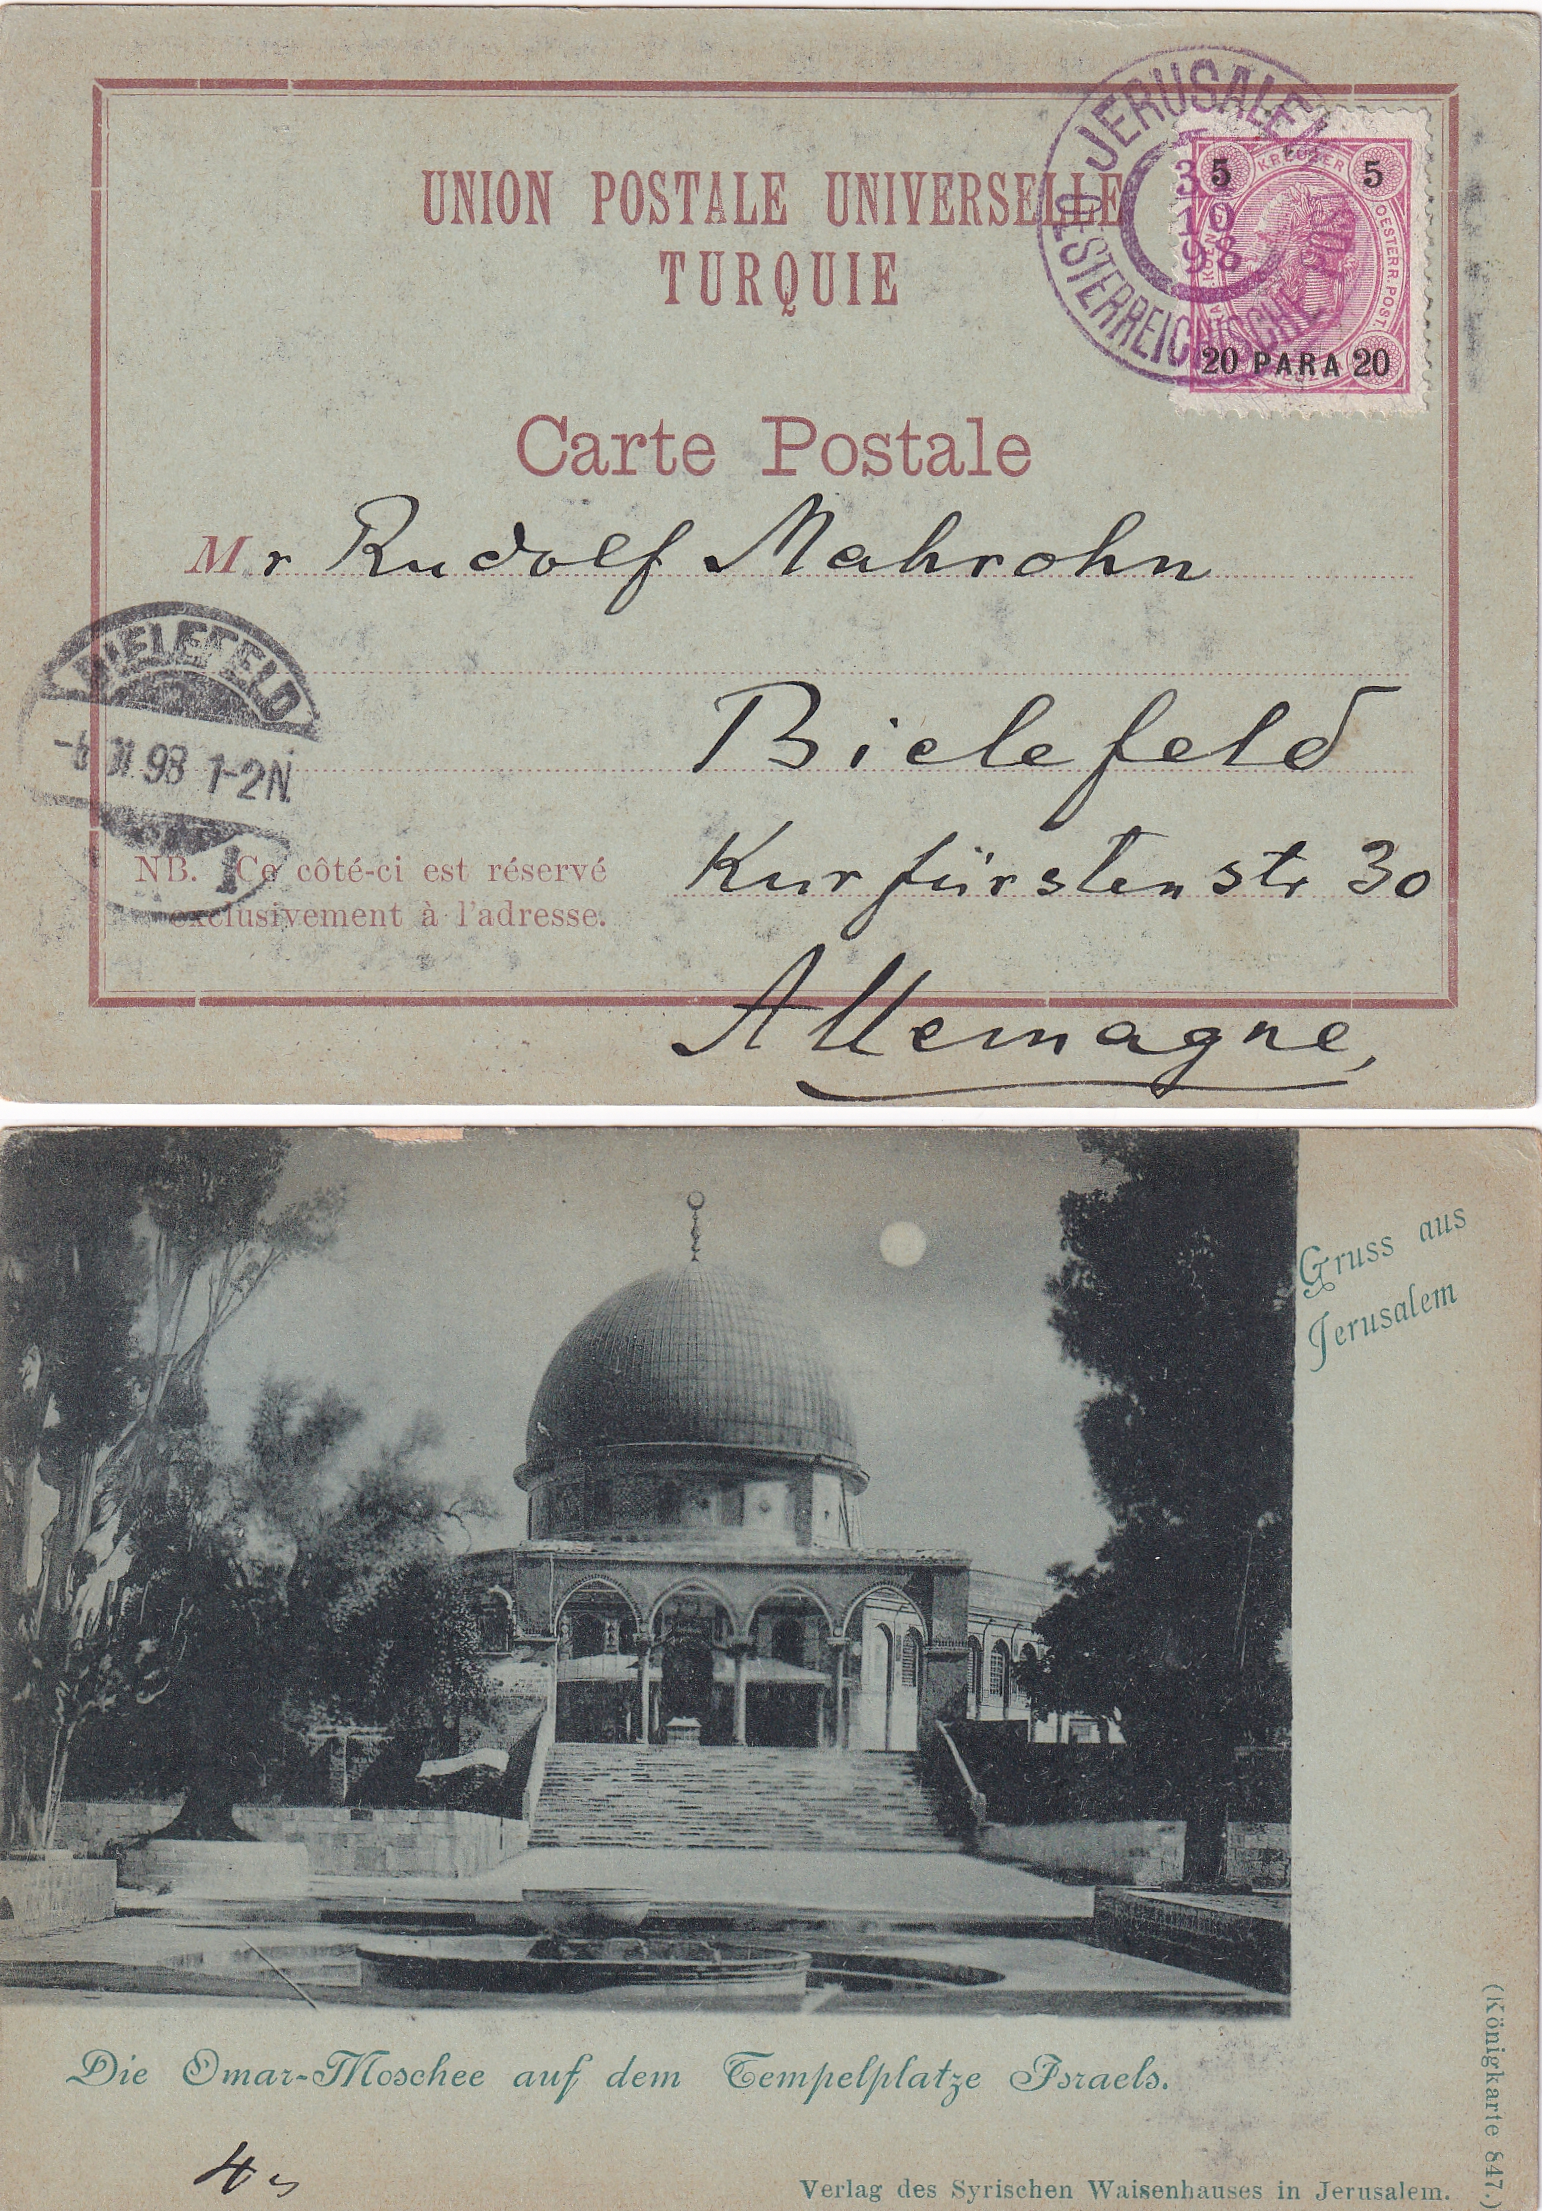 UNION POSTALE UNIVERSELLE
TURQUIE
JERUSALEM
OESTERREICHISCHE POST
10
98
5 KREUZER 5
OESTERR. POST.
20 PARA 20
Carte Postale
Mr Rudolf Mahrohn
Bielefeld
Kurfürstenstr 30
Allemagne,
BIELEFELD
98 1-2N.
1
NB. Ce côté-ci est réservé
exclusivement à l'adresse.
Gruss aus
Jerusalem
Die Omar-Moschee auf dem Tempelplatze Israels.
Verlag des Syrischen Waisenhauses in Jerusalem.
(Königkarte 847.)